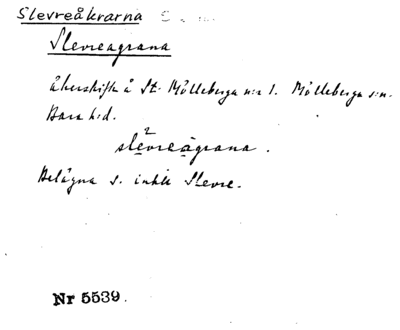 Slevreåkrarna
Slevreagrana
åkerskifte å St. Mölleberga n:r 1. Mölleberga s:n.
Bara h:d.
slevreagrana.
Belägna s. intill Slevre.
Nr 5539.